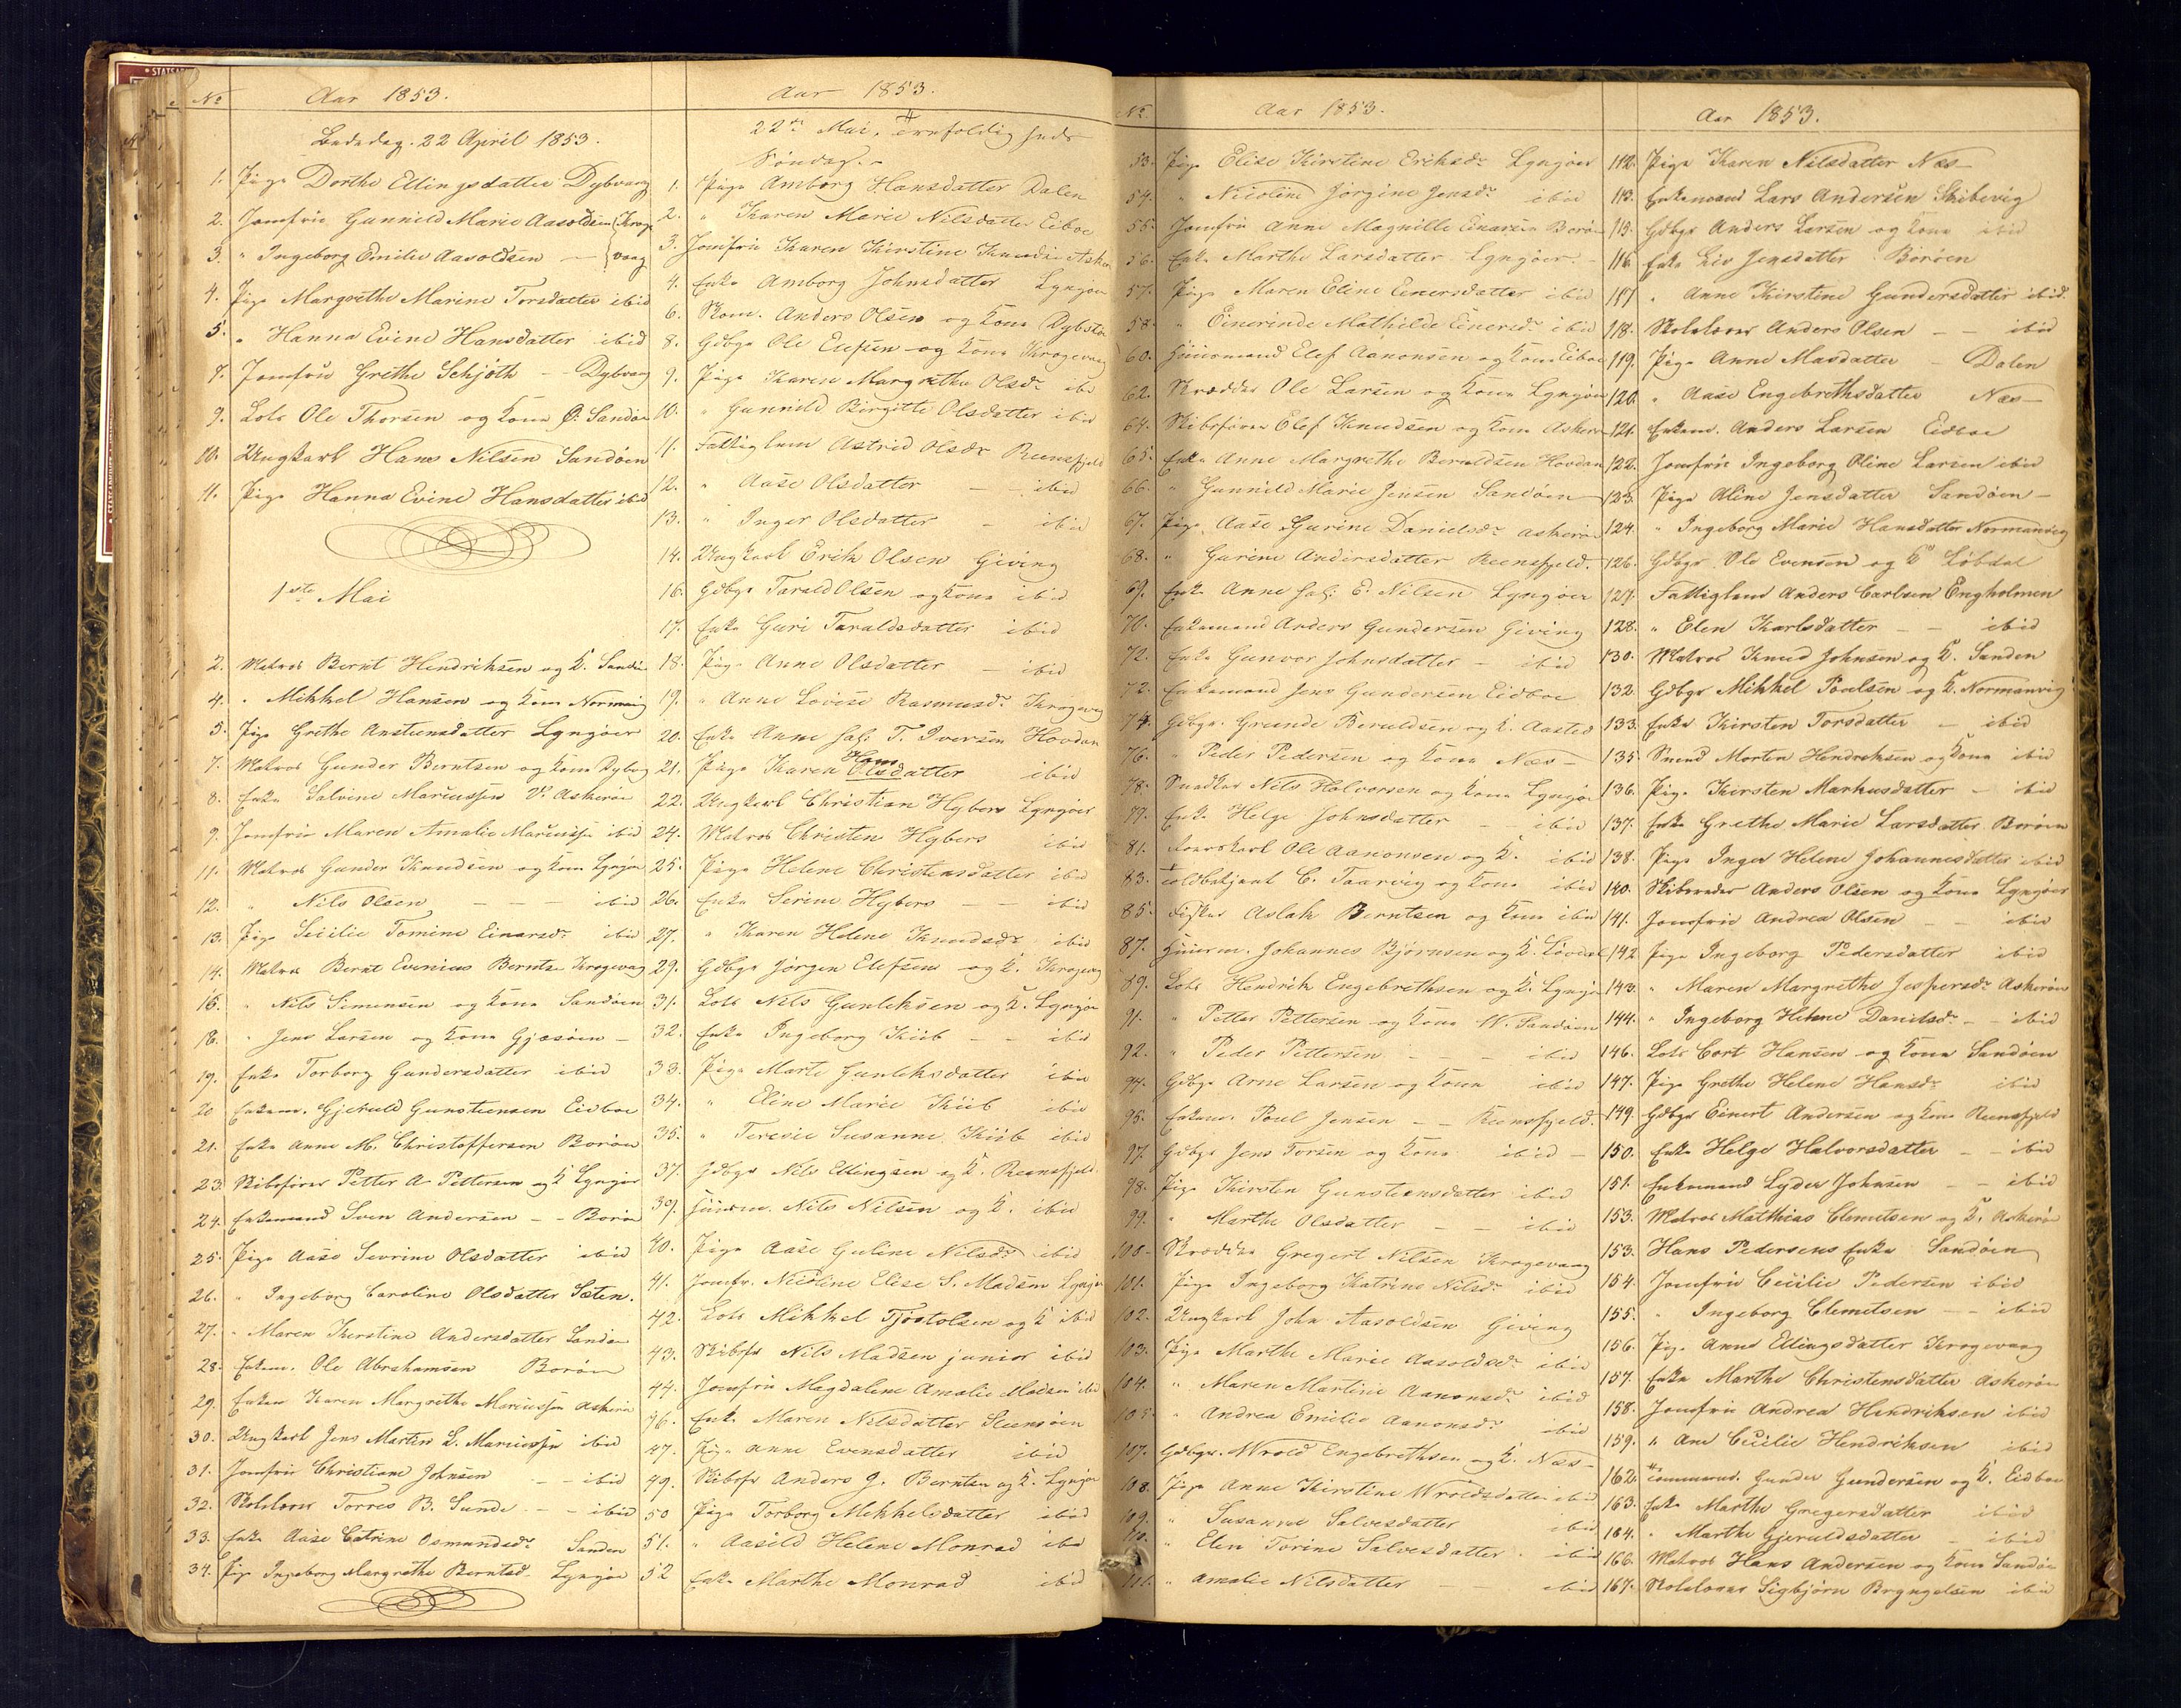 No
Aar 1853.
Bededag. 22 April 1853.
1. Pige Dorthe Ellingsdatter Dybvaag
2. Jomfru Gunnild Marie Aasoldsen (Krogevaag
3. " Ingeborg Emilie Aasoldsen —
4. Pige Margrethe Marine Torsdatter ibid
5. " Hanna Evine Hansdatter ibid
7. Jomfru Grethe Schjöth — Dybvaag
9. Lods Ole Thorsen og Kone Ø: Sandøe
10. Ungkarl Hans Nilsen Sandöen
11. Pige Hanna Evine Hansdatter ibid
1ste Mai
2. Matros Bernt Hendriksen og K. Sandø
4. " Mikkel Hansen og Kone Normvig
5. Pige Grethe Anstensdatter Lyngöer
7. Matros Gunder Berntsen og Kone Dybvg
8. Enke Salvine Mariussen V. Askerøe
9. Jomfru Maren Amalie Mariussen ibid
11. Matros Gunder Knudsen og Kone Lyngør
12. " Nils Olsen — — — ibid
13. Pige Secilie Tomine Einarsdr ibid
14. Matros Bernt Evenius Berntsen Krogevaag
16. " Nils Simensen og Kone Sandøen
18. " Jens Larsen og Kone Gjæsøen —
19. Enke Torborg Gundersdatter ibid
20 Enkem. Gjeruld Gunstensen Eidboe
21. Enke Anne M. Christoffersen Borøen
23. Skibsfører Petter A Pettersen og K Lyngør
24. Enkemand Sven Andersen — Borøe
25. Pige Aase Sevrine Olsdatter ibid
26. " Ingeborg Caroline Olsdatter Sæten.
27. " Maren Kirstine Andersdatter Sandø
28. Enkem. Ole Abrahamsen Borøen
29. Enken Karen Margrethe Mariussen Askerøe
30. Ungkarl Jens Martin L. Mariussen ibid
31. Jomfru Christiane Johnsen — ibid
32. Skolelærer Torres B. Sunde — ibid
33. Enke Aase Catrine Osmundsdr Sanden
34. Pige Ingeborg Margrethe Berntsd. Lyngør
Aar 1853.
22de Mai. Trefoldigheds
Söndag. —
1. Pige Amborg Hansdatter Dalen
2. " Karen Marie Nilsdatter Eiboe
3. Jomfru Karen Kirstine Knudsen Asker
4. Enke Amborg Johnsdatter Lyngøer
6. Anders Olsen og Kone Dybstø
8. Gdbgr Ole Elefsen og Kone Krogevaag
9. Pige Karen Margrethe Olsdr ibd
10. " Gunnild Birgitte Olsdatter ibid
11. Fattiglem Astrid Olsdr Reensfjeld
12. " Aase Olsdatter — ibid
13. " Inger Olsdatter — ibid
14. Ungkarl Erik Olsen Giving
16. Gdbgr Tarald Olsen og Kone ibid
17. Enke Guri Taraldsdatter ibid
18. Pige Anne Olsdatter — ibid
19. " Anne Lovise Rasmusdr Krogevg
20. Enke Anne sal: T. Iversen Hovdan
21. Pige Karen Hans Olsdatter ibid
22. Ungkarl Christian Hybers Lyngöer
24. Matros Christen Hybers ibid
25. Pige Helene Christensdatter ibid
26. Enke Serine Hybers — ibid
27. " Karen Helene Knudsdr ibid
29. Gdbgr Jörgen Elefsen og K. Krogevg
31. Lods Nils Gunleksen og K. Lyngør
32. Enke Ingeborg Kiib — ibid
33. Pige Marte Gunleksdatter ibid
34. " Eline Marie Kiib ibid
35. " Teresie Susanne Kiib ibid
37. Gdbgr Nils Ellingsen og K. Reensfjeld
39. Huusm. Nils Nilsen og K. ibid
40. Pige Aase Guline Nilsdr ibid
41. Jomfr. Nicoline Elise S. Madsen Lyngør
42. Lods Mikkel Tjöstolsen og K ibid
43. Skibsfr Nils Madsen junior ibid
44. Jomfru Magdalene Amalie Madsen ibid
46. Enke Maren Nilsdatter Steensöen
47. Pige Anne Evensdatter ibid
49. Skibsfr Anders G. Berntsen og K. Lyngør
50 Pige Torborg Mikkelsdatter ibid
51. " Aasild Helene Monrad ibd
52 Enke Marthe Monrad ibid
No
Aar 1853.
53. Pige Elise Kirstine Eriksdr Lyngöer
54. " Nicoline Jörgine Jensdr ibid
55. Jomfru Anne Magnille Einarsen Borøen
56. Enke Marthe Larsdatter Lyngöer. —
57. Pige Maren Eline Einersdatter ibid
58. " Einerinde Mathilde Einersdr ibid
60. Huusmand Elef Aanonsen og Kone Eiboe
62. Skrædder Ole Larsen og Kone Lyngør
64. Skibsfører Elef Knudsen og Kone Askerø
65. Enke Anne Margrethe Beruldsen Hovdan
66. " Gunnild Marie Jensen Sandöen
67. Pige Aase Gurine Danielsdr Askerø
68. " Gurine Andersdatter Reensfjeld.
69. Enke Anne sal: E. Nilsen Lyngöer
70. Enkemand Anders Gundersen Giving
72. Enke Gunvor Johnsdatter — ibid
72. Enkemand Jens Gundersen Eidboe
74. Gdbgr. Grunde Beruldsen og K. Aasted
76. " Peder Pedersen og Kone Næs —
78. Snedker Nils Halvorsen og Kone Lyngør
79. Enke Helge Johnsdatter — ibid
81. Ole Aanonsen og K. ibid
83. Toldbetjent C. Taarvig og Kone ibid
85. Fisker Aslak Berntsen og Kone ibid
87. Huusm. Johannes Björnsen og K. Løvdal
89. Lods Hendrik Engebrethsen og K. Lyngør
91. " Petter Pettersen og Kone W. Sandøen
92. " Peder Pettersen — — ibid
94. Gdbgr Arne Larsen og Kone ibid
95. Enkem. Poul Jensen — Reensfjeld.
97. Gdbgr Jens Torsen og Kone ibid —
98. Pige Kirsten Gunstensdatter ibid
99. " Marthe Olsdatter — — ibid
100. Skrædder Gregert Nilsen Krogevaag
101. Pige Ingeborg Katrine Nilsdr ibid
102. Ungkarl John Aasoldsen Giving
103. Pige Marthe Marie Aasoldsdr ibid
104. " Maren Martine Aanonsdr ibid
105. " Andrea Emilie Aanonsdr ibid
107. Gdbgr. Wrold Engebrethsen og K. Næs —
108. Pige Anne Kirstine Wroldsdatter ibid
109. " Susanne Salvesdatter ibid
110. " Elen Torine Salvesdatter ibid
111. " Amalie Nilsdatter — — ibid
Aar 1853.
112. Pige Karen Nilsdatter Næs —
113. Enkemand Lars Andersen Skibevig
115. Gdbgr Anders Larsen og Kone ibid
116. Enke Liv Jensdatter Boröen
117 " Anne Kirstine Gundersdatter ibid.
118. Skolelærer Anders Olsen — — ibid
119. Pige Anne Masdatter — Dalen
120. " Aase Engebrethsdatter Næs —
121. Enkem. Anders Larsen Eidboe
122. Jomfru Ingeborg Oline Larsen ibid
123. Pige Aline Jensdatter Sandöen —
124. " Ingeborg Marie Hansdatter Normanvig
126. Gdbgr. Ole Evensen og Ke Löbdal
127. Fattiglem Anders Carlsen Engholmen
128. " Elen Karlsdatter — — ibid
130. Matros Knud Johnsen og K. Sanden
132. Gdbgr Mikkel Poulsen og K. Normanvig
133. Enke Kirsten Torsdatter — ibid
135. Smed Morten Hendriksen og Kone ibid
136. Pige Kirsten Markusdatter — ibid
137. Enke Grethe Marie Larsdatter Borøen
138. Pige Inger Helene Johannesdatter ibid
140. Skibsreder Anders Olsen og Kone Lyngöer
141. Jomfru Andrea Olsen — — ibid
142 Pige Ingeborg Pedersdatter ibid
143. " Maren Margrethe Jespersdr Askerøe
144. " Ingeborg Helene Danielsdr — ibid
146. Lods Cort Hansen og Kone Sandöen
147. Pige Grethe Helene Hansdr ibid
149. Gdbgr Einert Andersen og Kone Reensfjeld
150. Enke Helge Halvorsdatter — — ibid
151. Enkemand Lyder Johnsen — — ibid
153. Matros Mathias Clemetsen og K. Askerøe
153. Hans Pedersens Enke Sandöen
154. Jomfru Cecilie Pedersen ibid
155. " Ingeborg Clemetsen — — ibid
156. Pige Anne Ellingsdatter Krogevaag
157. Enke Marthe Christensdatter Askerøe
158. Jomfru Andrea Hendriksen ibid
159. " Ane Cecilie Hendriksen ibid
162. Gunder Gundersen og K. Eidboe
163. Enke Marthe Gregersdatter ibid
164. " Marthe Gjeruldsdatter — ibid
166. Matros Hans Andersen og Kone Sandøe
167. Skolelærer Sigbjörn Bryngelsen ibid